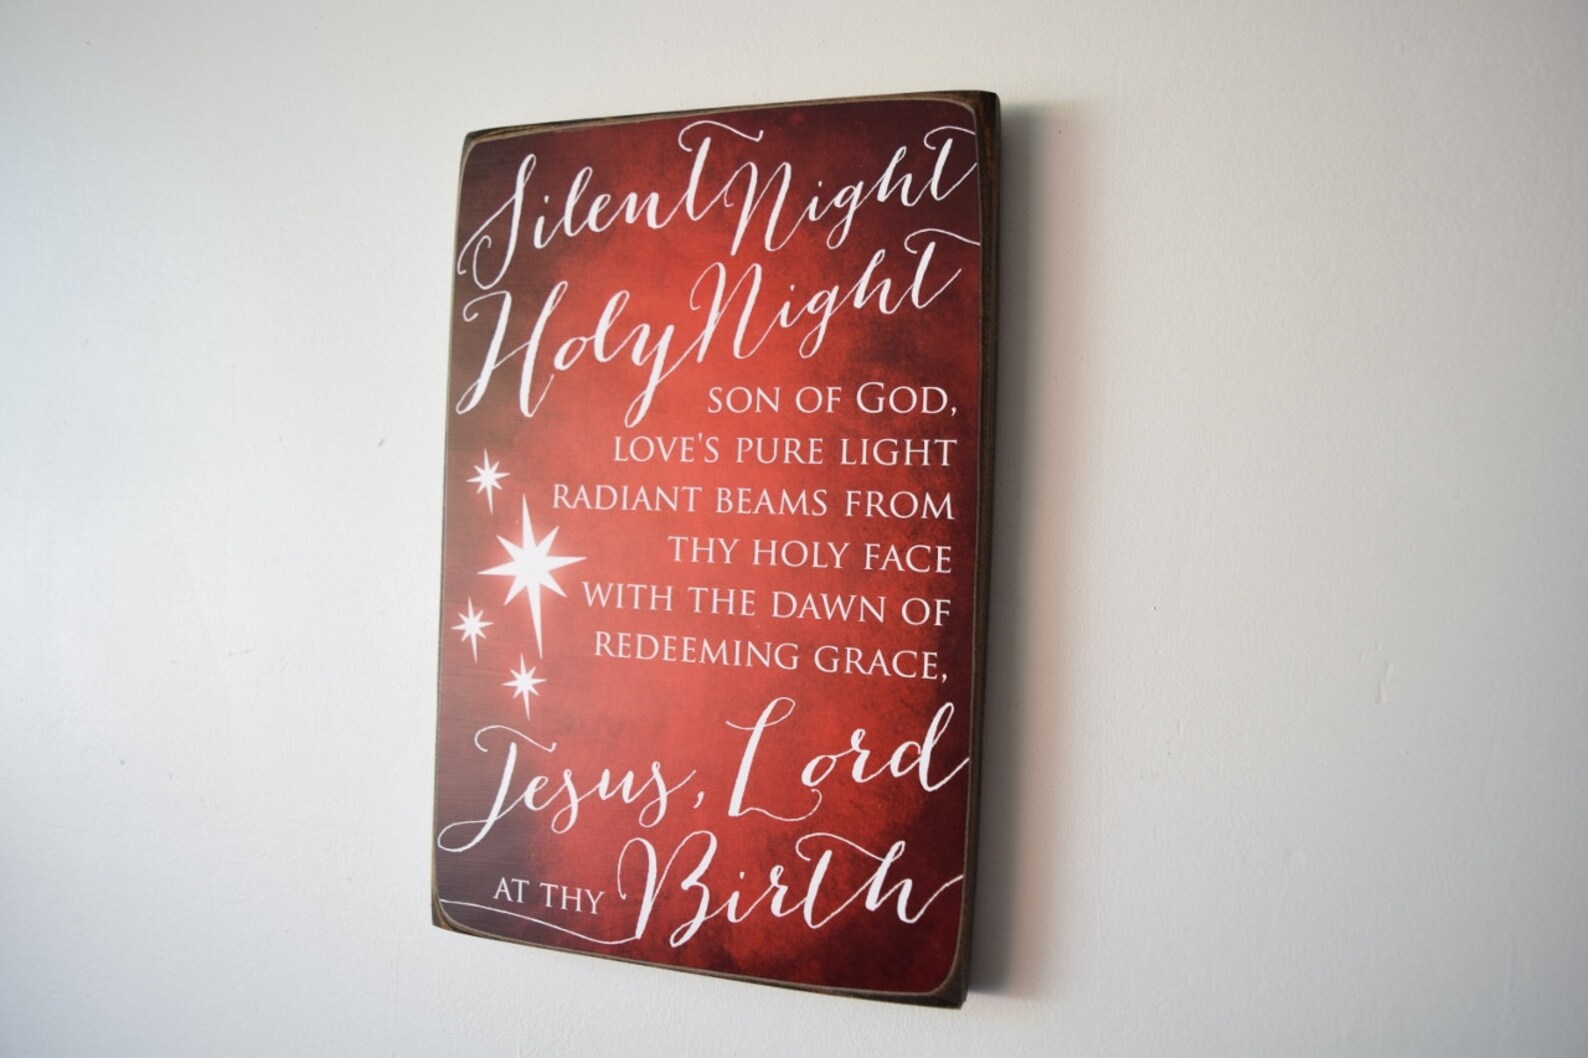 Silent Night
Holy Night
SON OF GOD,
LOVE'S PURE LIGHT
RADIANT BEAMS FROM
THY HOLY FACE
WITH THE DAWN OF
REDEEMING GRACE,
Jesus, Lord
AT THY Birth